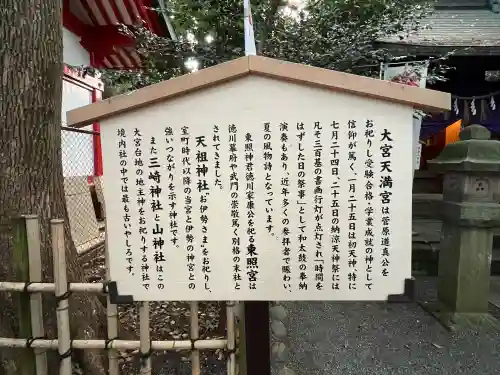 大宮天満宮は菅原道真公を
お祀りし受験合格・学業成就の神として
信仰が篤く、一月二十五日は初天神、特に
七月二十四日、二十五日の納涼天神祭には
凡そ三百基の書画行灯が点灯され「時間を
はずした日の祭事」として和太鼓の奉納
演奏もあり、近年多くの参拝者で賑わい、
夏の風物詩となっています。
東照神君徳川家康公を祀る東照宮は
徳川幕府や武門の崇敬篤い別格の末社と
されてきました。
天祖神社お伊勢さまをお祀りし、
室町時代以降の当宮と伊勢の神宮との
強いつながりを示す神社です。
また三峰神社と山神社はこの
大宮台地の地主神をお祀りする神社で
境内社の中では最も古いとみられています。